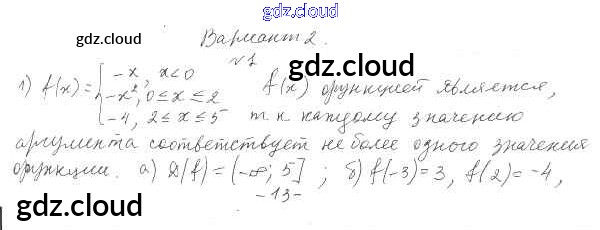 gdz.cloud
gdz.cloud
Вариант 2.
№1
gdz.cloud
1) f(x) = { -x, x<0
-x², 0≤x≤2
-4, 2≤x≤5
f(x) функцией является,
т к каждому значению
аргумента соответствует не более одного значения
функции. а) D(f) = (-∞; 5] ; б) f(-3)=3, f(2)=-4,
-13-
gdz.cloud
gdz.cloud